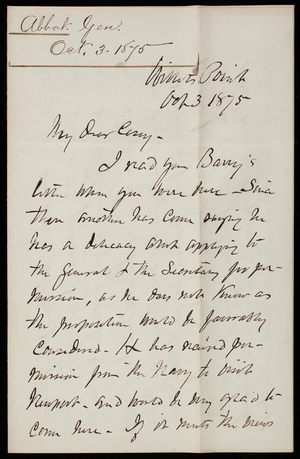 Abbot. Gen.
Oct. 3. 1875
Willets Point
Oct 3 1875
My dear Casey -
I read you Barry's
letter when you were here - Since
then another has come saying he
has a delicacy about applying to
the General & the Secretary for per-
mission, as he does not know as
the proposition would be favorably
considered - He has received per-
mission from the Navy to visit
Newport - and would be very glad to
come here - If it meets the views